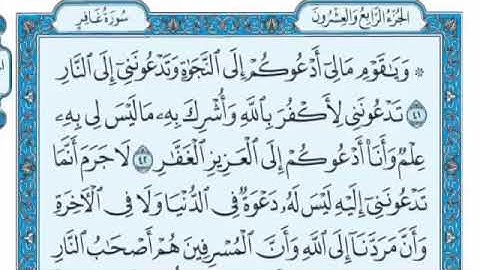 الجُزْءُ الرَّابِعُ وَالعِشْرُونَ
سُورَةُ غَافِرٍ
۞ وَيَٰقَوْمِ مَا لِيٓ أَدْعُوكُمْ إِلَى ٱلنَّجَوٰةِ وَتَدْعُونَنِيٓ إِلَى ٱلنَّارِ
٤١ تَدْعُونَنِي لِأَكْفُرَ بِٱللَّهِ وَأُشْرِكَ بِهِۦ مَا لَيْسَ لِي بِهِۦ
عِلْمٌ وَأَنَا۠ أَدْعُوكُمْ إِلَى ٱلْعَزِيزِ ٱلْغَفَّٰرِ ٤٢ لَا جَرَمَ أَنَّمَا
تَدْعُونَنِيٓ إِلَيْهِ لَيْسَ لَهُۥ دَعْوَةٌ فِي ٱلدُّنْيَا وَلَا فِي ٱلْأٓخِرَةِ
وَأَنَّ مَرَدَّنَآ إِلَى ٱللَّهِ وَأَنَّ ٱلْمُسْرِفِينَ هُمْ أَصْحَٰبُ ٱلنَّارِ